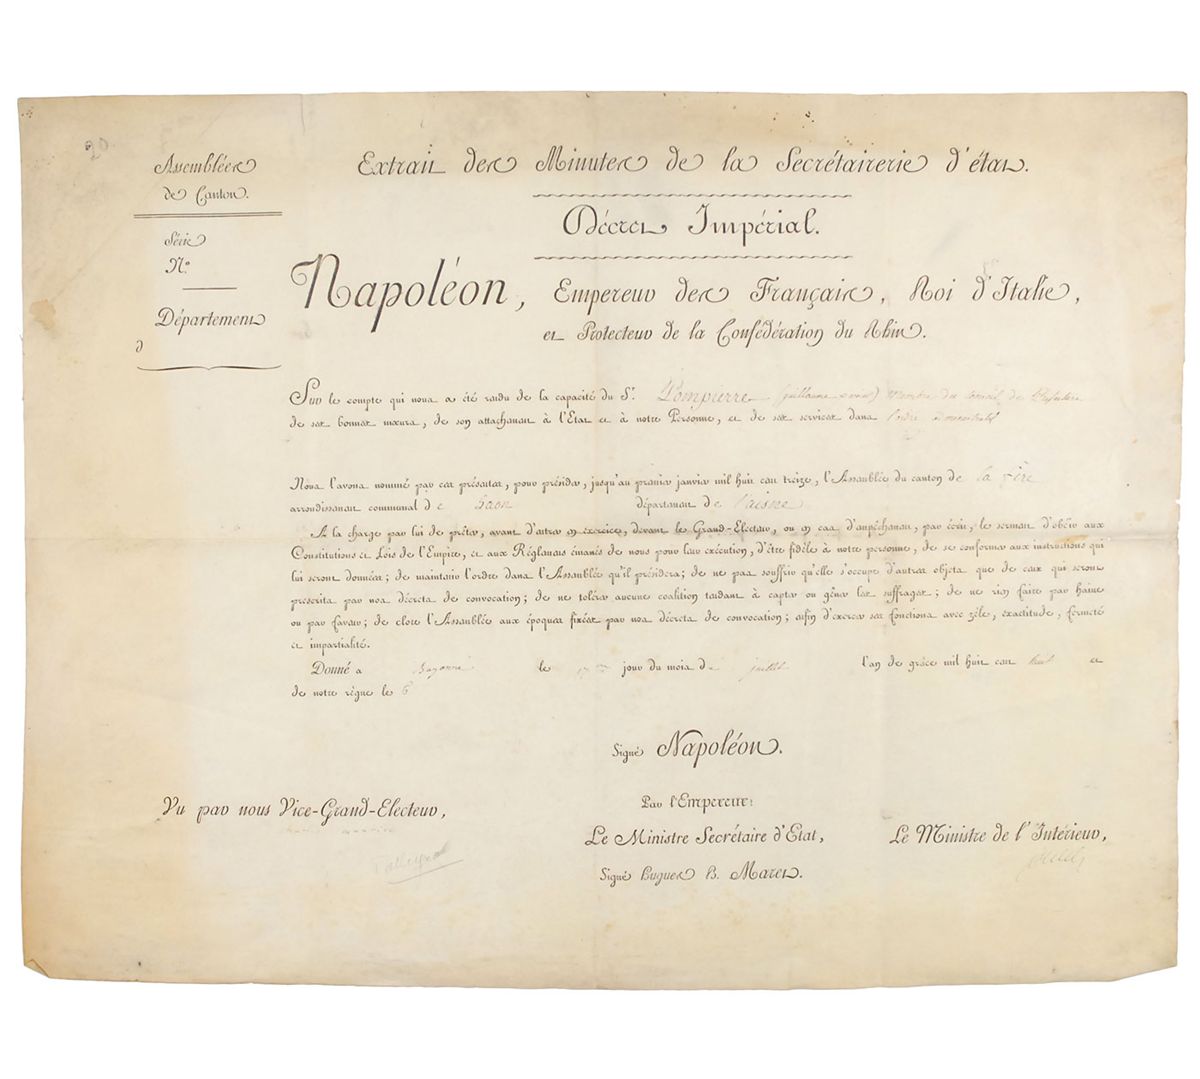 20
Assemblées
de Canton.
Série
N.º
Département
d
Extrait des Minutes de la Secrétairerie d'état.
Décret Impérial.
Napoléon, Empereur des Français, Roi d'Italie,
et Protecteur de la Confédération du Rhin.
Sur le compte qui nous a été rendu de la capacité du S.r Pompierre (guillaume xavier) Membre du Conseil de Préfecture
de ses bonnes mœurs, de son attachement à l'Etat et à notre Personne, et de ses services dans l'ordre administratif
Nous l'avons nommé par ces présentes, pour présider, jusqu'au premier janvier mil huit cent treize, l'Assemblée du canton de la fère
arrondissement communal de Laon département de l'aisne
A la charge par lui de prêter, avant d'entrer en exercice, devant le Grand-Electeur, ou en cas d'empêchement, par écrit, le serment d'obéir aux
Constitutions et Lois de l'Empire, et aux Réglemens émanés de nous pour leur exécution, d'être fidèle à notre personne, de se conformer aux instructions qui
lui seront données; de maintenir l'ordre dans l'Assemblée qu'il présidera; de ne pas souffrir qu'elle s'occupe d'autres objets que de ceux qui seront
prescrits par nos décrets de convocation; de ne tolérer aucune coalition tendant à capter ou gêner les suffrages; de ne rien faire par haine
ou par faveur; de clore l'Assemblée aux époques fixées par nos décrets de convocation; enfin d'exercer ses fonctions avec zèle, exactitude, fermeté
et impartialité.
Donné à Bayonne le jour du mois de juillet l'an de grâce mil huit cent huit et
de notre règne le 6
Signé Napoléon.
Vu par nous Vice-Grand-Electeur,
Par l'Empereur:
Le Ministre Secrétaire d'Etat,
Le Ministre de l'Intérieur,
Signé Hugues B. Maret.